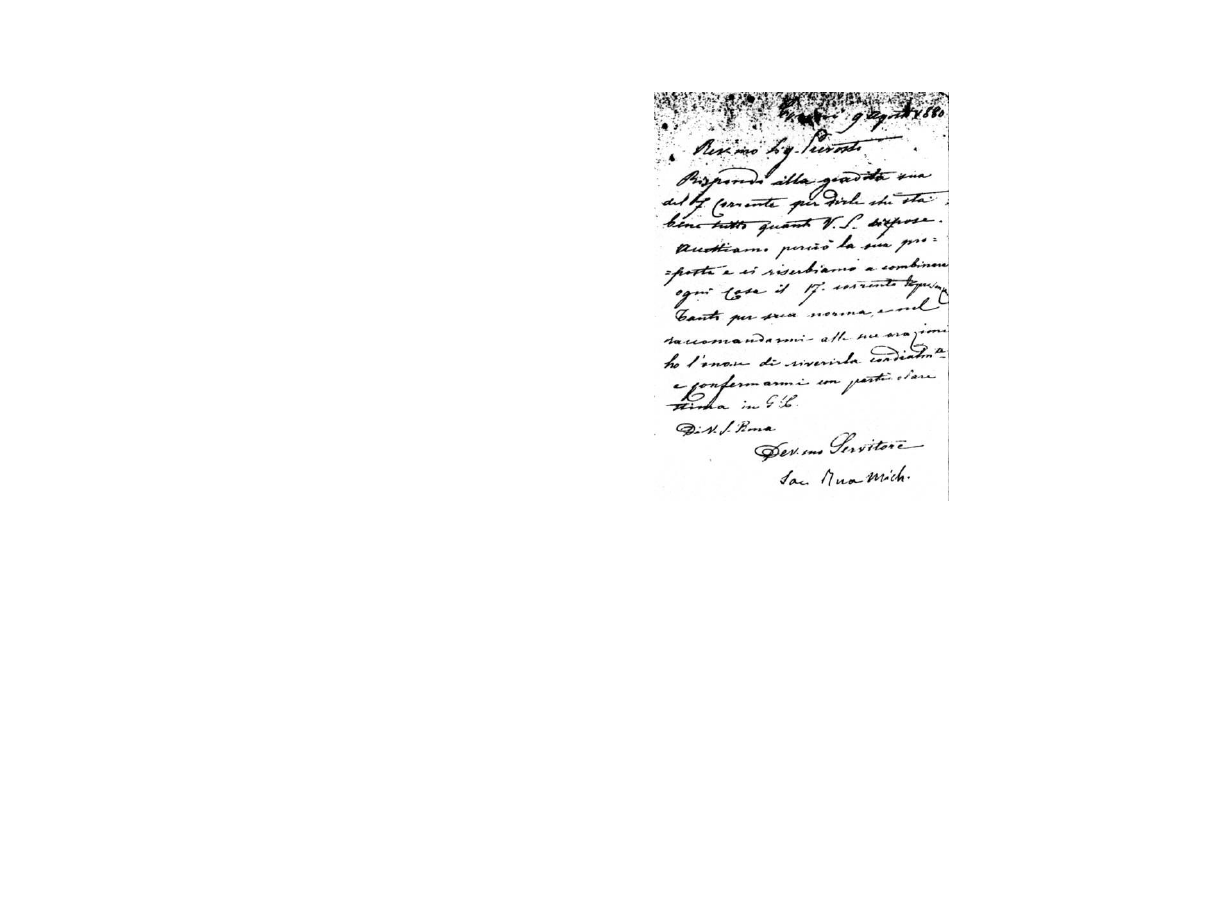 9 Agosto 1880
Rev.mo Sig. Prevosto
Rispondo alla gradita sua
del 7 Corrente per dirle che sta
bene tutto quanto V. S. dispose.
Accettiamo perciò la sua pro=
=posta e ci riserbiamo a combinare
ogni cosa il 17. corrente
Tanto per sua norma, e nel
raccomandarmi alle sue orazioni
ho l'onore di riverirla cordialm.te
e confermarmi con particolare
stima in G. C.
Di V. S. R.ma
Dev.mo Servitore
Sac. Rua Mich.